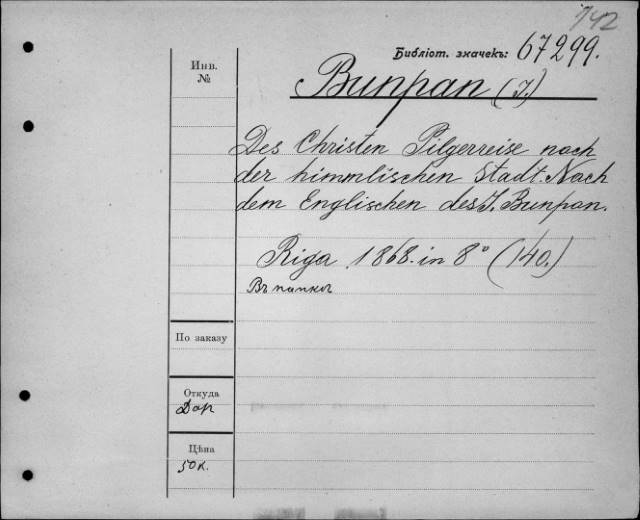 742
Библіот. значекъ: 67299.
Инв.
№
Bunpan (J.)
Des Christen Pilgerreise nach
der himmlischen Stadt. Nach
dem Englischen des J. Bunpan.
Riga 1868. in 8° (140.)
Въ папкѣ
По заказу
Откуда
Дар
Цѣна
50 к.